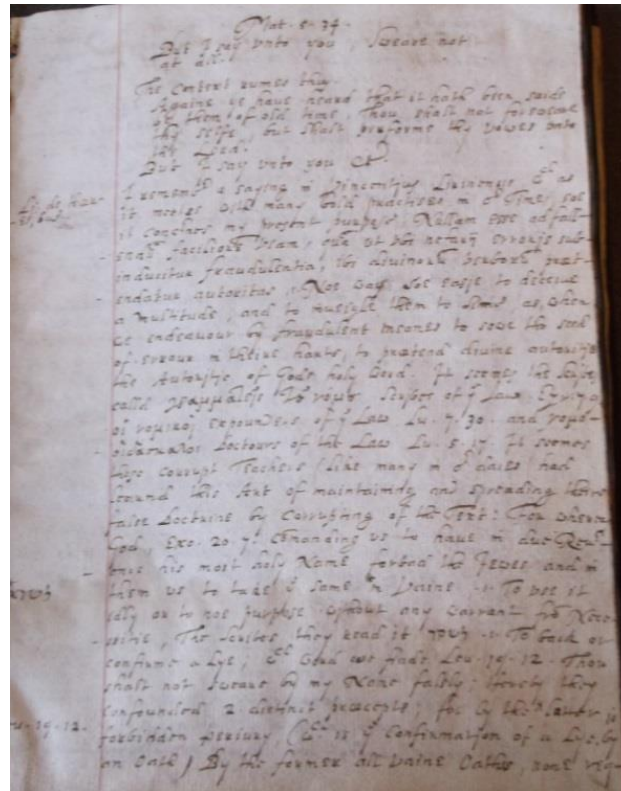 Mat. 5. 34.
But I say vnto you, sweare not
at all.
The Context runnes thus.
Againe ye have heard that it hath been saide
by them of old time, Thou shalt not forsweare
thy selfe, but shalt performe thy vowes vnto
the Lord:
But I say vnto you &c.
a saying in Vincentius Lirinensis wch as
it meetes with many bold practises in or Times, soe
it concerns my present purpose, Nullam esse ad fall-
endū faciliorē viam, quā vt vbi nefarij erroris sub-
inducitur fraudulentia, ibi divinorū verborū præt-
endatur autoritas. Noe way soe easie to deceive
a multitude, and to them to as, when
we endeavour by fraudulent meanes to sowe the seed
of errour in theire harts, to pretend divine autoritie
the Autoritie of Gods holy word. It seemes the
calld γραμματεῖς τοῦ νόμου Scribes of ye Law,
οἱ νομικοὶ expounders of ye Law Lu. 7. 30. and νομο-
διδάσκαλοι Doctours of the Law Lu. 5. 17. It seemes
these corrupt Teachers (like many in or daies) had
learnd this Art of maintaining and spreading theire
false Doctrine by Corrupting of the Text: For wheras
God, Exo. 20. 7. Comanding vs to have in due Reue-
rence his most holy Name forbad the Jewes and in
them vs to take ye same in Vaine .i. To vse it
idly or to noe purpose without any warrant frō Nece-
ssitie, The Scribes they read it .i. To back or
confirme a Lye, wch word we finde Leu. 19. 12. Thou
shalt not sweare by my Name falsly; Herety they
confounded 2 distinct precepts; for by the latter is
Leu. 19. 12.
forbidden periury (wch is ye Confirmation of a Lye by
an Oath) By the former all vaine Oathes, none